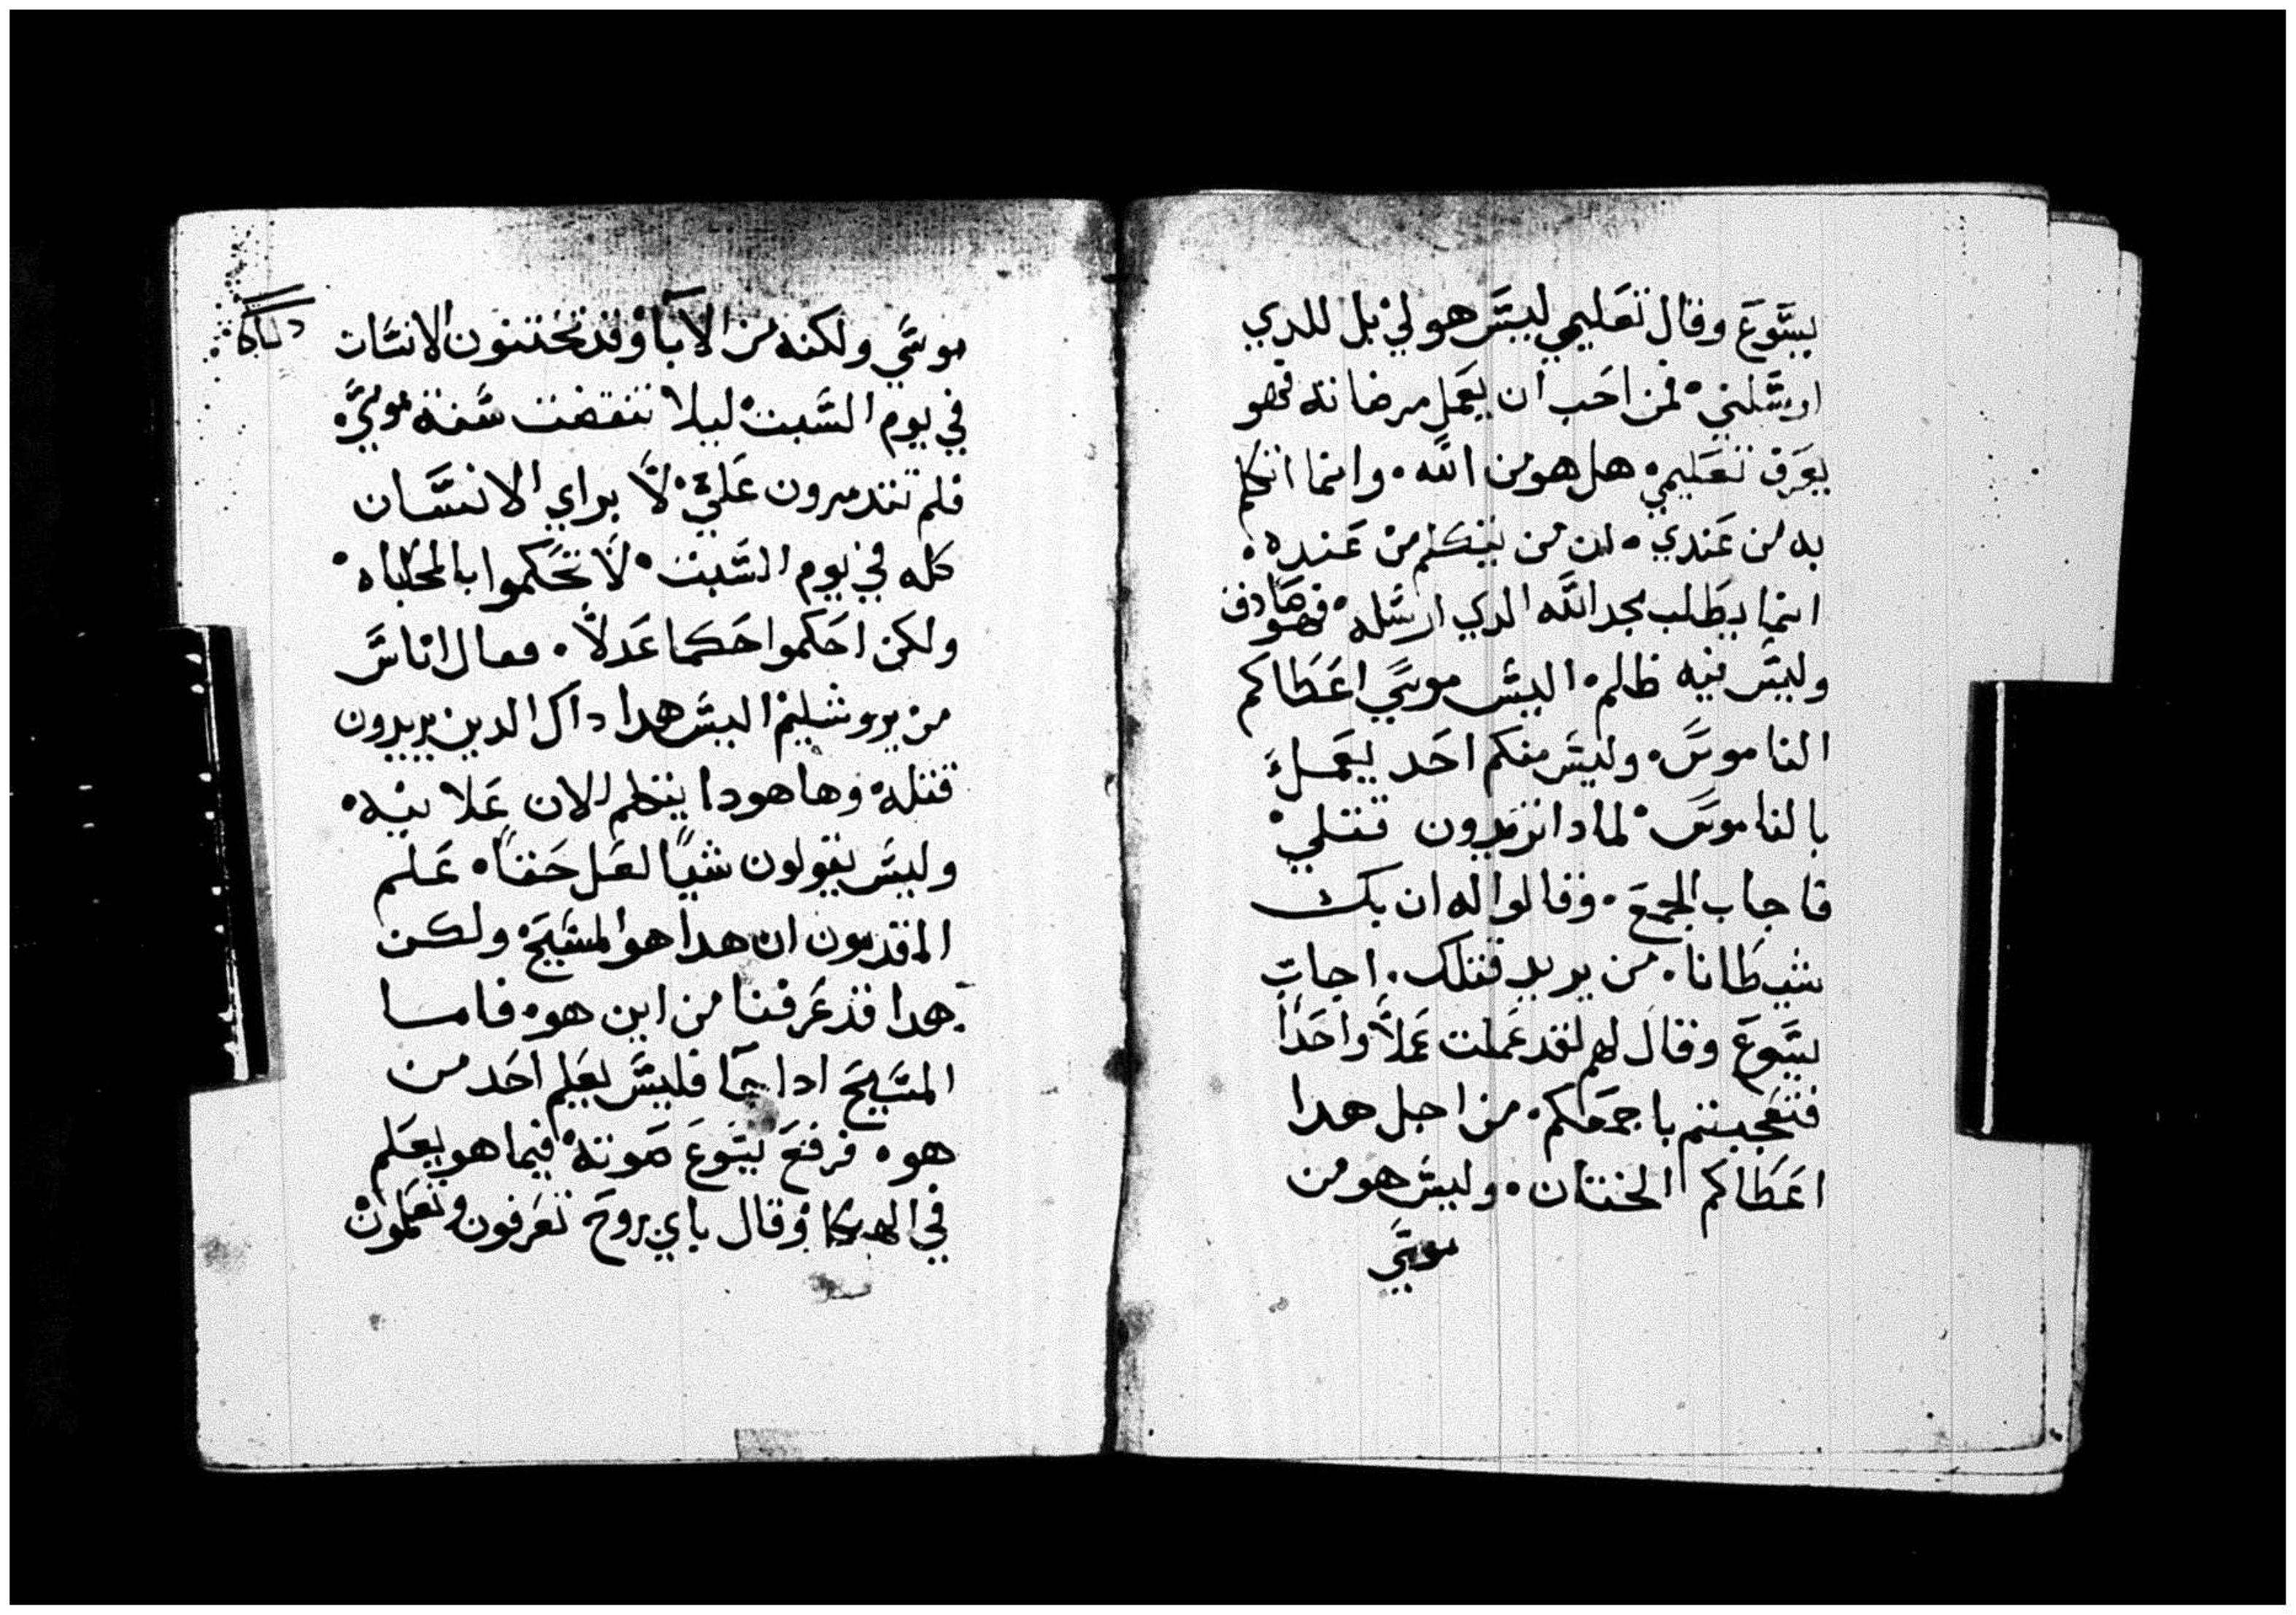 يسوع وقال تعليمي ليس هو لي بل للدي
ارسلني فمن احب ان يعمل مرضاته فهو
يعرف تعليمي هل هو من الله وانما اتكلم
به من عندي لان من يتكلم من عنده
انما يطلب مجد الله الدي ارسله فهو صادق
وليس فيه ظلم اليس موسي اعطاكم
الناموس وليس منكم احد يعمل
بالناموس لمادا تريدون قتلي
فاجاب الجمع وقالوا له ان بك
شيطانا من يريد قتلك اجاب
يسوع وقال لهم لقد عملت عملا واحدا
فتعجبتم باجمعكم من اجل هدا
اعطاكم الختان وليس هو من
موسي
موسي ولكنه من الابا وقد تختنون الانسان
في يوم السبت ليلا تنقضت سنة موسي
فلم تتدمرون علي لا براي الانسان
كله في يوم السبت لا تحكموا بالمحاباه
ولكن احكموا حكما عدلا فقال اناس
من يروشليم اليس هدا داك الدين يريدون
قتله وها هودا يتكلم الان علانيه
وليس يقولون شيا لعل حقا علم
المقدمون ان هدا هو المسيح ولكن
هدا قد عرفنا من اين هو فاما
المسيح ادا جا فليس يعلم احد من
هو فرفع يسوع صوته فيما هو يعلم
في الهيكل وقال باي روح تعرفون وتعلمون